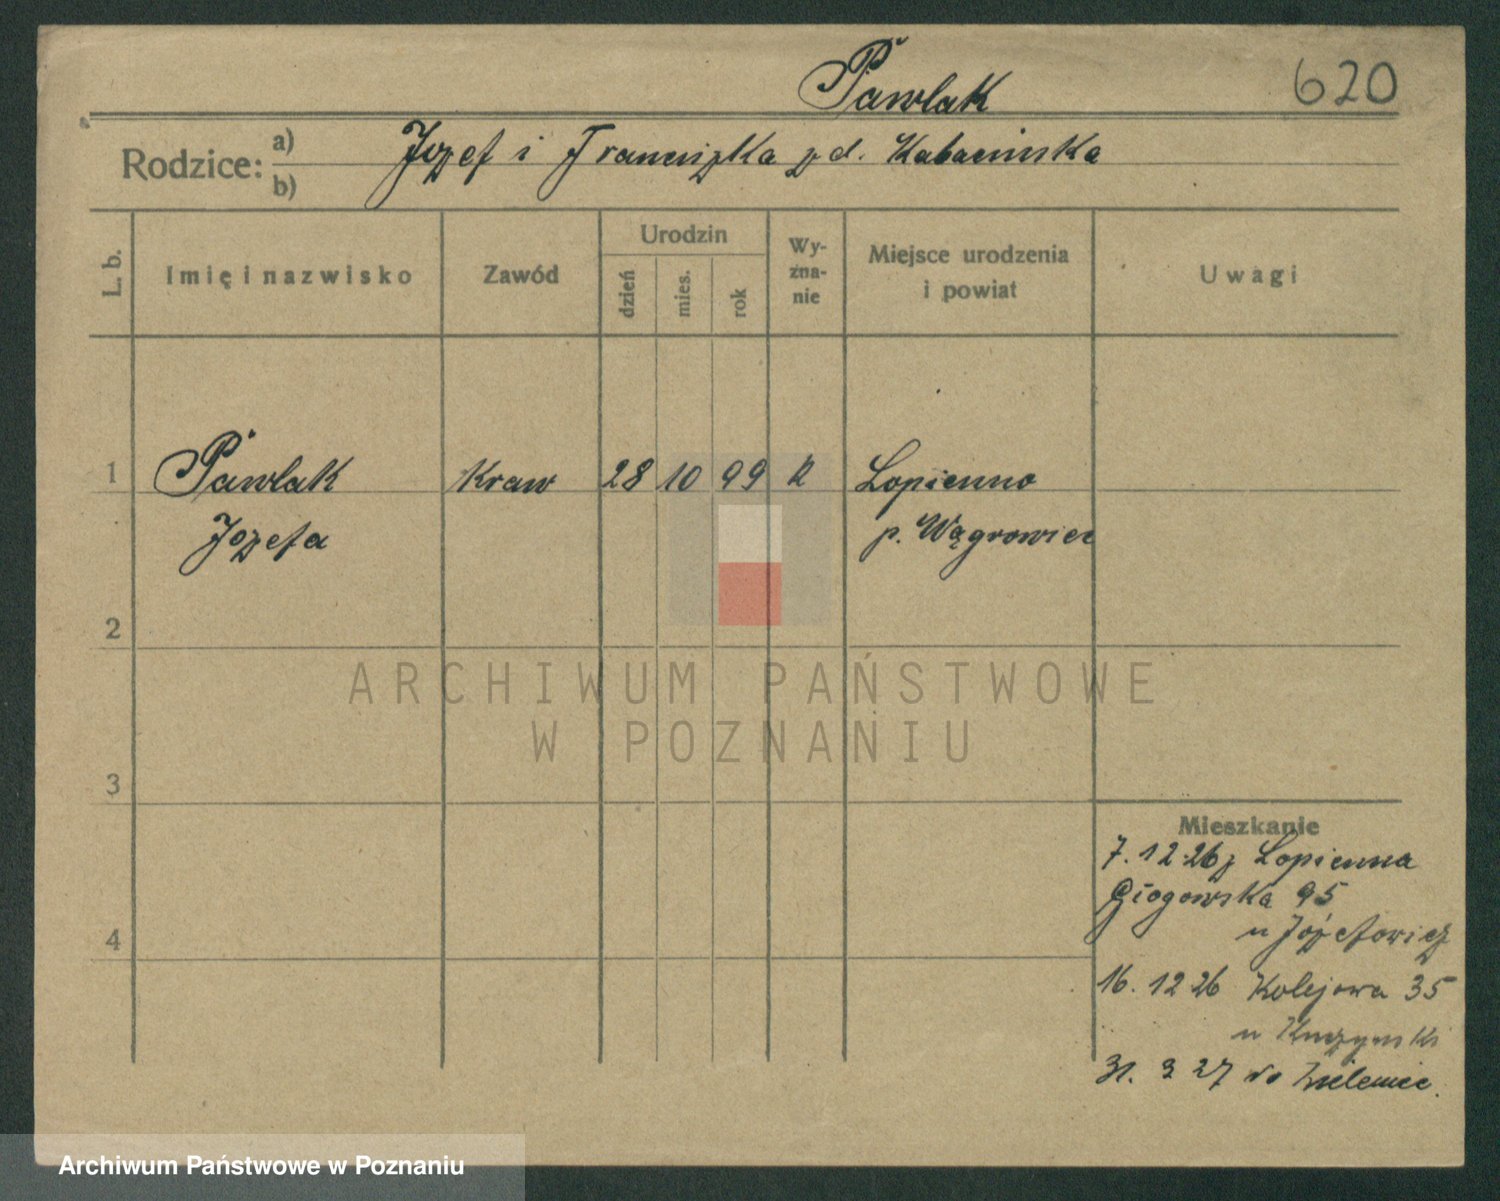 Pawlak
620
Rodzice: a) b)
Jozef i Franciszka zd. Kabacinska
L. b.
Imię i nazwisko
Zawód
Urodzin
dzień
mies.
rok
Wy-
zna-
nie
Miejsce urodzenia
i powiat
Uwagi
1 Pawlak Kraw 28 10 99 R Lopienno
Jozefa p. Wągrowiec
2
ARCHIWUM PAŃSTWOWE
W POZNANIU
3
Mieszkanie
7. 12.26 z Lopienna
Głogowska 95
u Józefowicz
4
16. 12 26 Kolejowa 35
u
31. 3 27 do
Archiwum Państwowe w Poznaniu